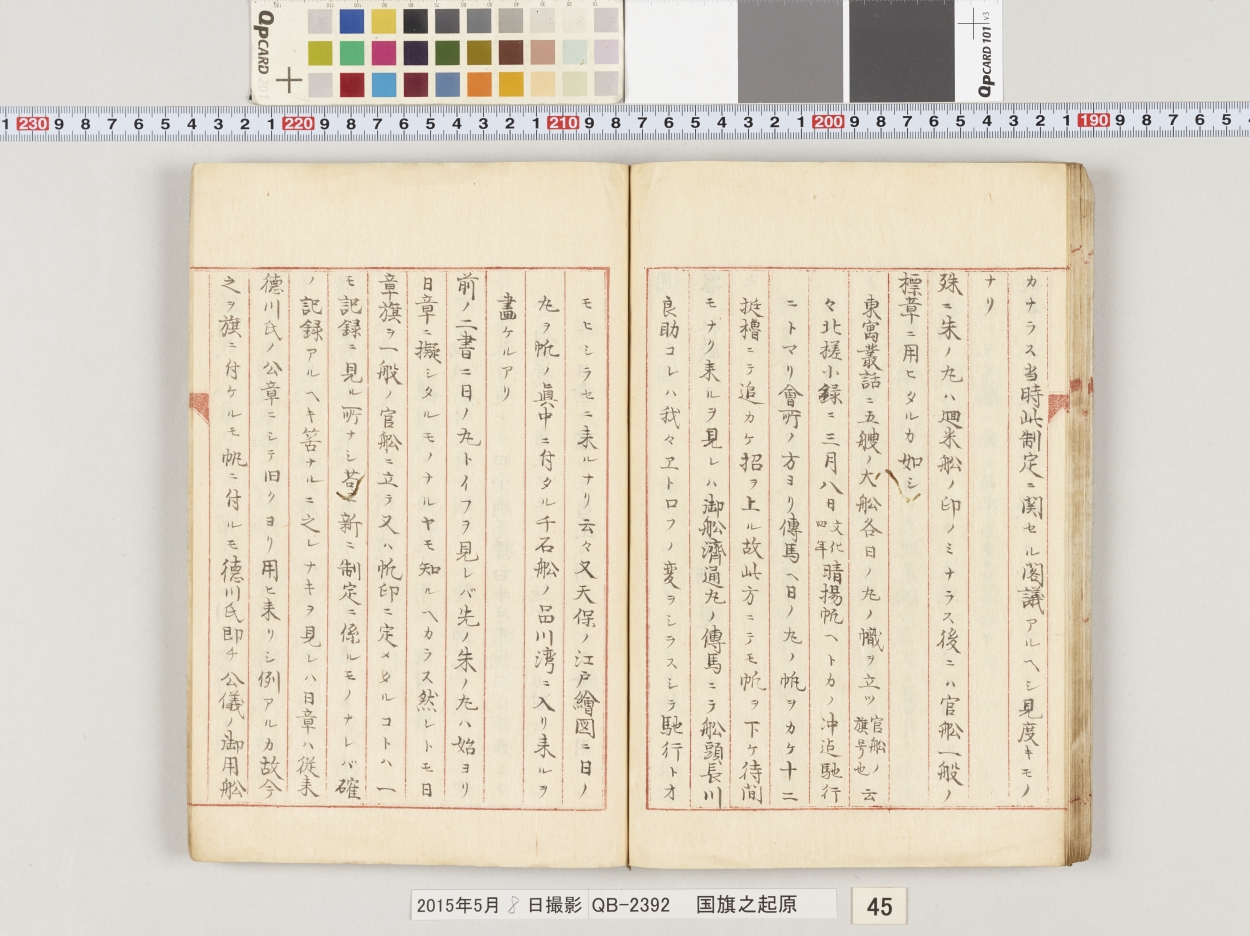 カナラス当時此制定ニ関セル閣議アルヘシ見度キモノ
ナリ
殊ニ朱ノ丸ハ廻米舩ノ印ノミナラス後ニハ官舩一般ノ
標章ニ用ヒタルカ如シ
東寓叢話ニ五艘ノ大舩各日ノ丸ノ幟ヲ立ツ官舩ノ旗号也云
々北槎小録ニ三月八日文化四年晴揚帆ヘトカノ冲迠馳行
ニトマリ會所ノ方ヨリ傳馬ヘ日ノ丸ノ帆ヲカケ十二
挺櫓ニテ追カケ招ヲ上ル故此方ニテモ帆ヲ下ケ待間
モナク来ルヲ見レハ御舩濟通丸ノ傳馬ニテ舩頭長川
良助コレハ我々ヱトロフノ変ヲシラスシテ馳行トオ
モヒシラセニ来ルナリ云々又天保ノ江戸繪図ニ日ノ
丸ヲ帆ノ眞中ニ付タル千石舩ノ品川湾ニ入リ来ルヲ
畵ケルアリ
前ノ二書ニ日ノ丸トイフヲ見レバ先ノ朱ノ丸ハ始ヨリ
日章ニ擬シタルモノナルヤモ知ルヘカラス然レトモ日
章旗ヲ一般ノ官舩ニ立テ又ハ帆印ニ定メタルコトハ一
モ記録ニ見ル所ナシ若シ新ニ制定ニ係ルモノナレバ確
ノ記録アルヘキ筈ナルニ之レナキヲ見レハ日章ハ従来
德川氏ノ公章ニシテ旧クヨリ用ヒ来リシ例アルカ故今
之ヲ旗ニ付ケルモ帆ニ付ルモ德川氏即チ公儀ノ御用舩
2015年5月 8 日撮影 QB-2392 国旗之起原
45
QPCARD 101 v3
QPCARD 201
1 230 9 8 7 6 5 4 3 2 1 220 9 8 7 6 5 4 3 2 1 210 9 8 7 6 5 4 3 2 1 200 9 8 7 6 5 4 3 2 1 190 9 8 7 6 5